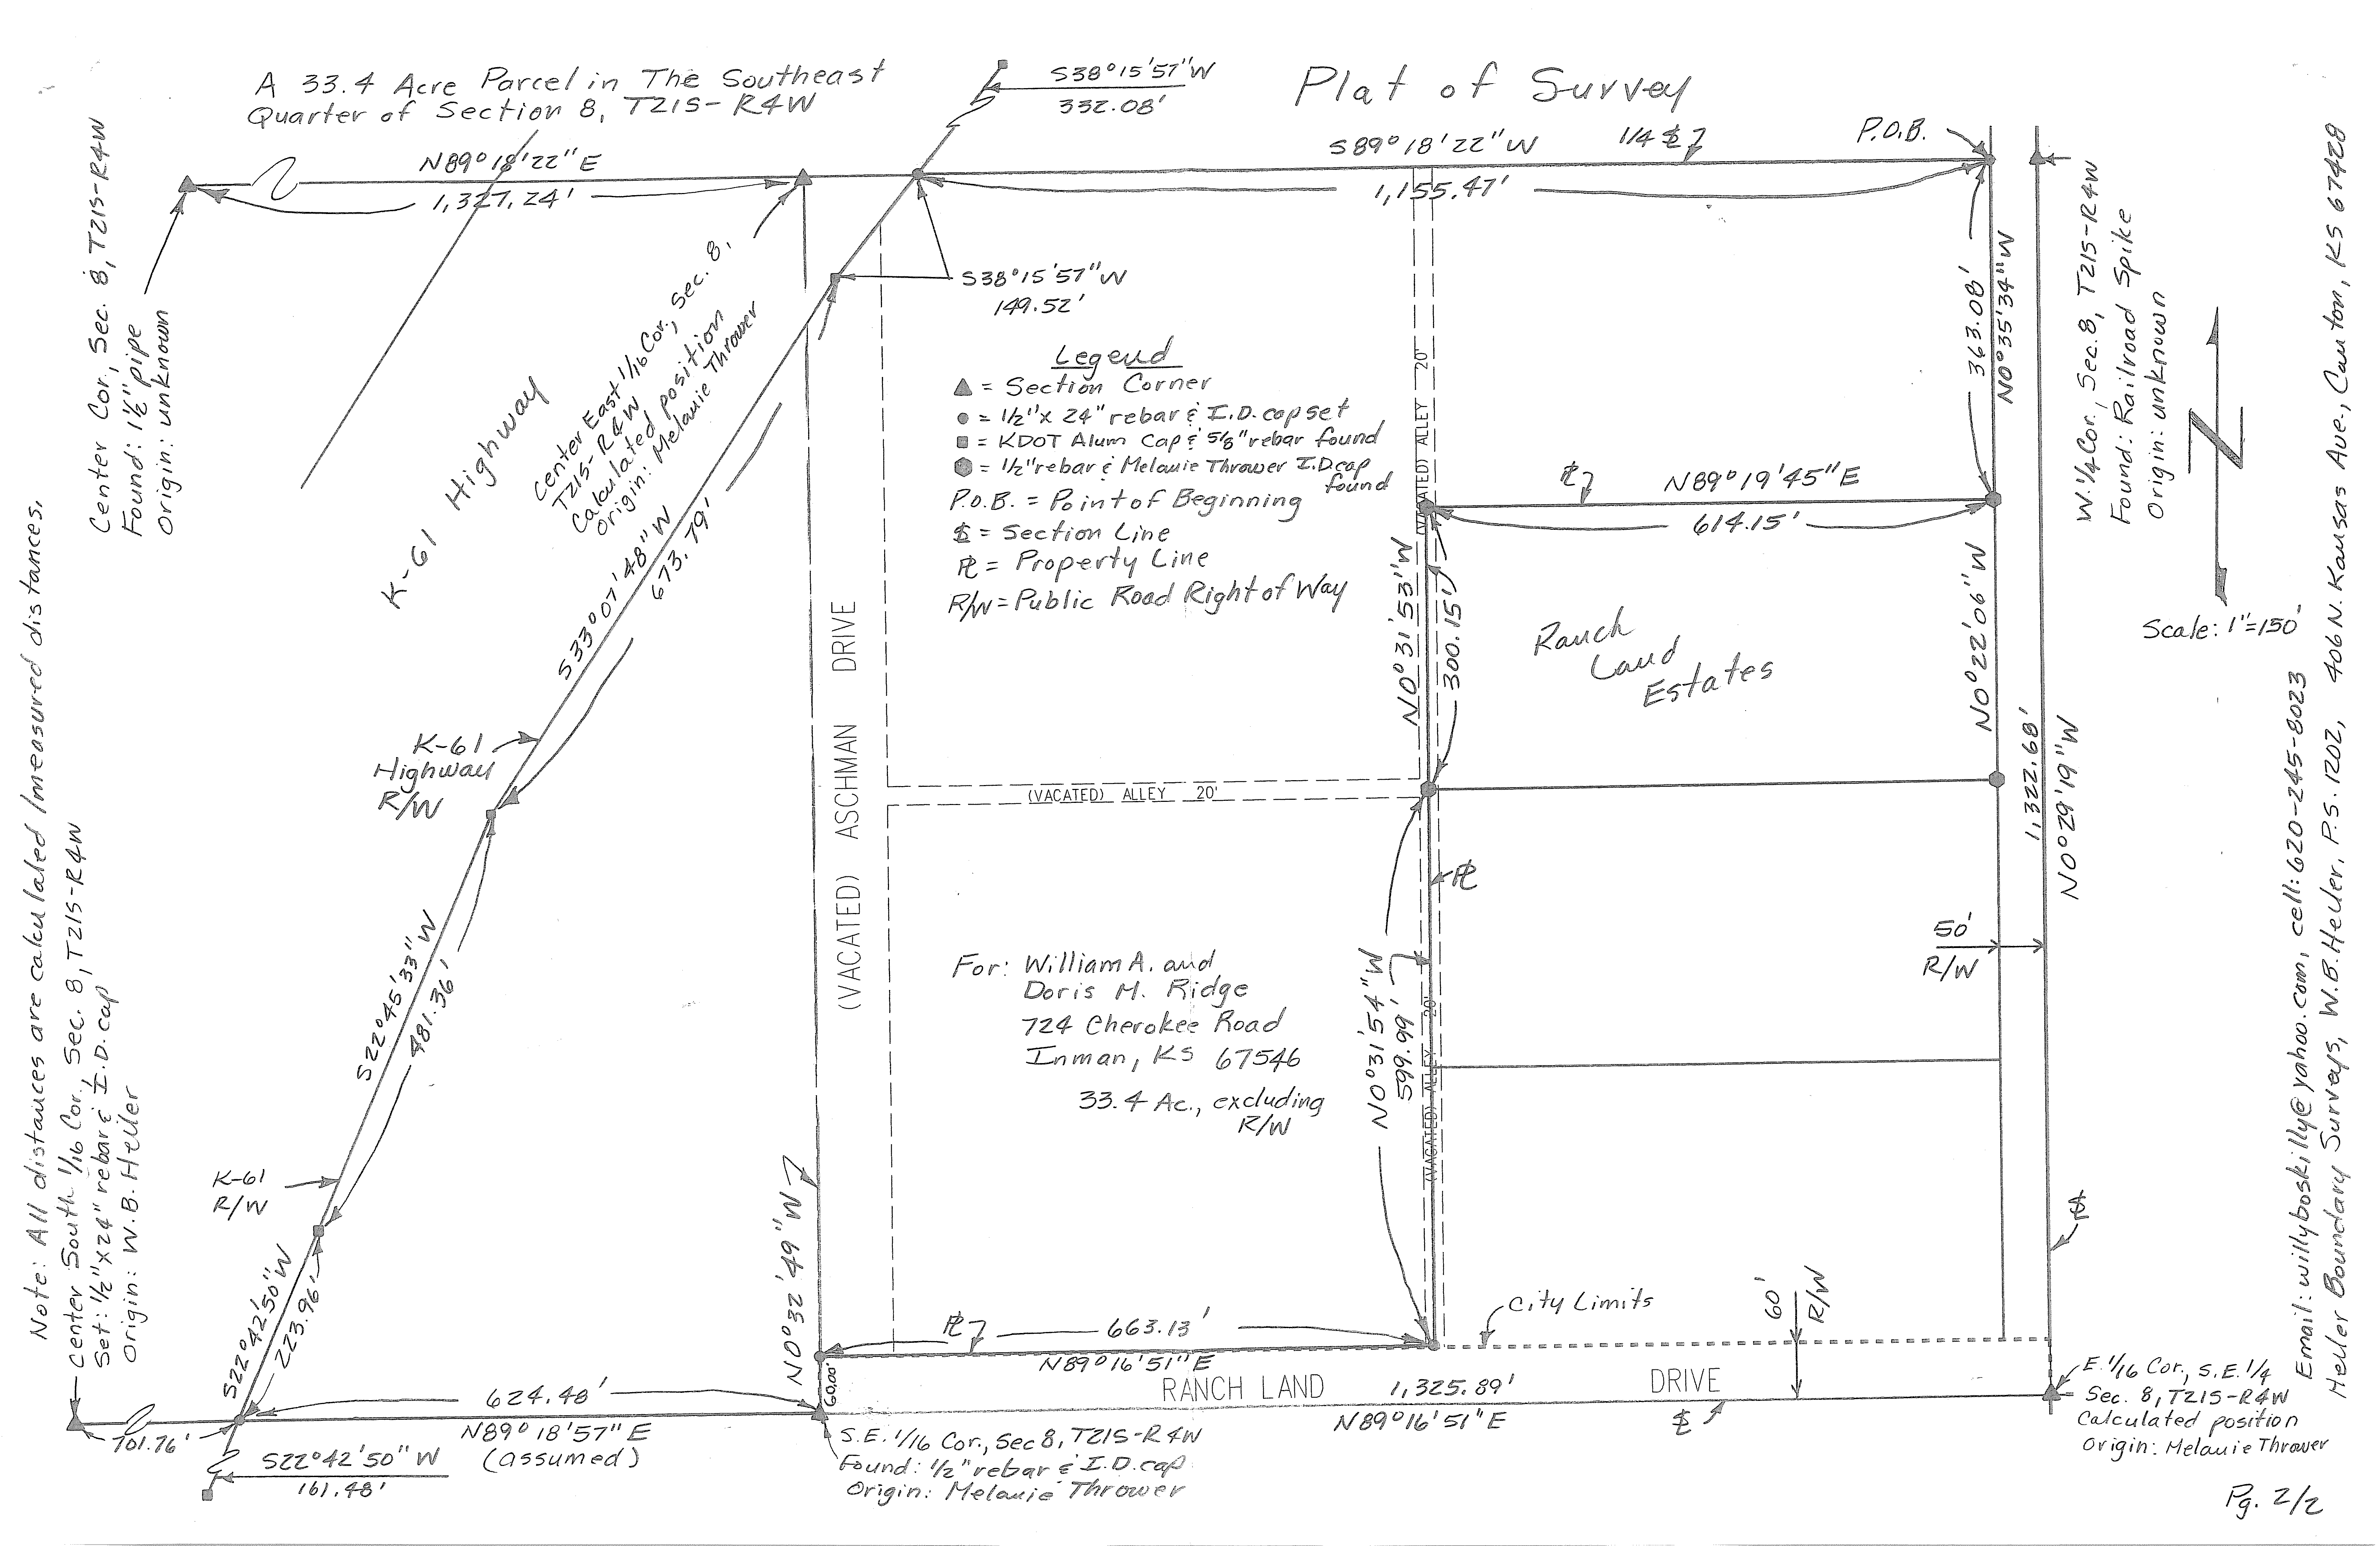 A 33.4 Acre Parcel in The Southeast
Quarter of Section 8, T21S-R4W
Plat of Survey
S38°15'57"W
332.08'
N89°18'22"E
1,327.24'
S89°18'22"W
1,155.47'
1/4
P.O.B.
Center Cor., Sec. 8, T21S-R4W
Found: 1½" pipe
Origin: unknown
S38°15'57"W
149.52'
K-61 Highway
Center East 1/16 Cor., Sec. 8,
T21S-R4W
Calculated position
Origin: Melanie Thrower
S33°07'48"W
673.79'
Legend
▲ = Section Corner
● = 1/2"x 24" rebar & I.D. cap set
■ = KDOT Alum Cap & 5/8" rebar found
⬢ = 1/2" rebar & Melanie Thrower I.D. cap
found
P.O.B. = Point of Beginning
= Section Line
PL = Property Line
R/W = Public Road Right of Way
(VACATED) ALLEY 20'
363.08'
N0°35'34"W
W.¼ Cor., Sec. 8, T21S-R4W
Found: Railroad Spike
Origin: unknown
N
Scale: 1"=150'
PL
N89°19'45"E
614.15'
N0°31'53"W
300.15'
Ranch
Land
Estates
N0°22'06"W
1,322.68'
N0°29'19"W
K-61
Highway
R/W
(VACATED) ASCHMAN DRIVE
(VACATED) ALLEY 20'
PL
S22°45'33"W
481.36'
For: William A. and
Doris M. Ridge
724 Cherokee Road
Inman, KS 67546
33.4 Ac., excluding
R/W
N0°31'54"W
599.99'
(VACATED) ALLEY 20'
50'
R/W
K-61
R/W
S22°42'50"W
223.96'
N0°32'49"W
60.00'
PL
663.13'
N89°16'51"E
City Limits
60'
R/W
RANCH LAND DRIVE
1,325.89'
N89°16'51"E
624.48'
N89°18'57"E
(assumed)
701.76'
S22°42'50"W
161.48'
S.E. 1/16 Cor., Sec 8, T21S-R4W
Found: 1/2" rebar & I.D. cap
Origin: Melanie Thrower
E. 1/16 Cor., S.E. 1/4
Sec. 8, T21S-R4W
Calculated position
Origin: Melanie Thrower
Note: All distances are calculated/measured distances.
Center South 1/16 Cor., Sec. 8, T21S-R4W
Set: 1/2"x24" rebar & I.D. cap
Origin: W.B. Heiler
Email: willyboskilly@yahoo.com, cell: 620-245-8023
Heiler Boundary Surveys, W.B. Heiler, P.S. 1202, 406 N. Kansas Ave., Canton, KS 67428
Pg. 2/2